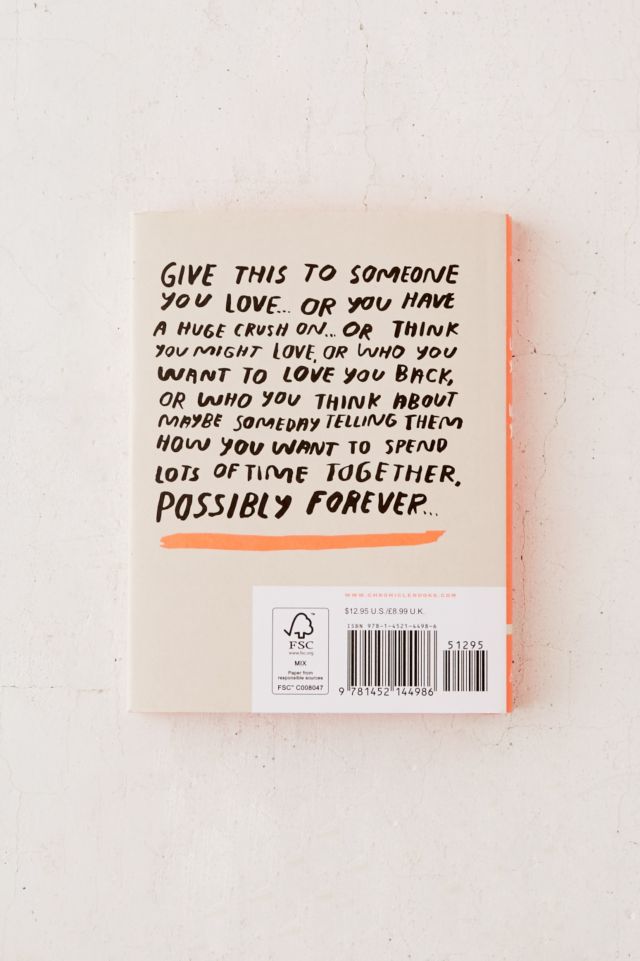 GIVE THIS TO SOMEONE
YOU LOVE... OR YOU HAVE
A HUGE CRUSH ON... OR THINK
YOU MIGHT LOVE, OR WHO YOU
WANT TO LOVE YOU BACK,
OR WHO YOU THINK ABOUT
MAYBE SOMEDAY TELLING THEM
HOW YOU WANT TO SPEND
LOTS OF TIME TOGETHER,
POSSIBLY FOREVER...
WWW.CHRONICLEBOOKS.COM
$12.95 U.S./£8.99 U.K.
ISBN 978-1-4521-4498-6
51295
9 781452 144986
FSC
www.fsc.org
MIX
Paper from
responsible sources
FSC™ C008047